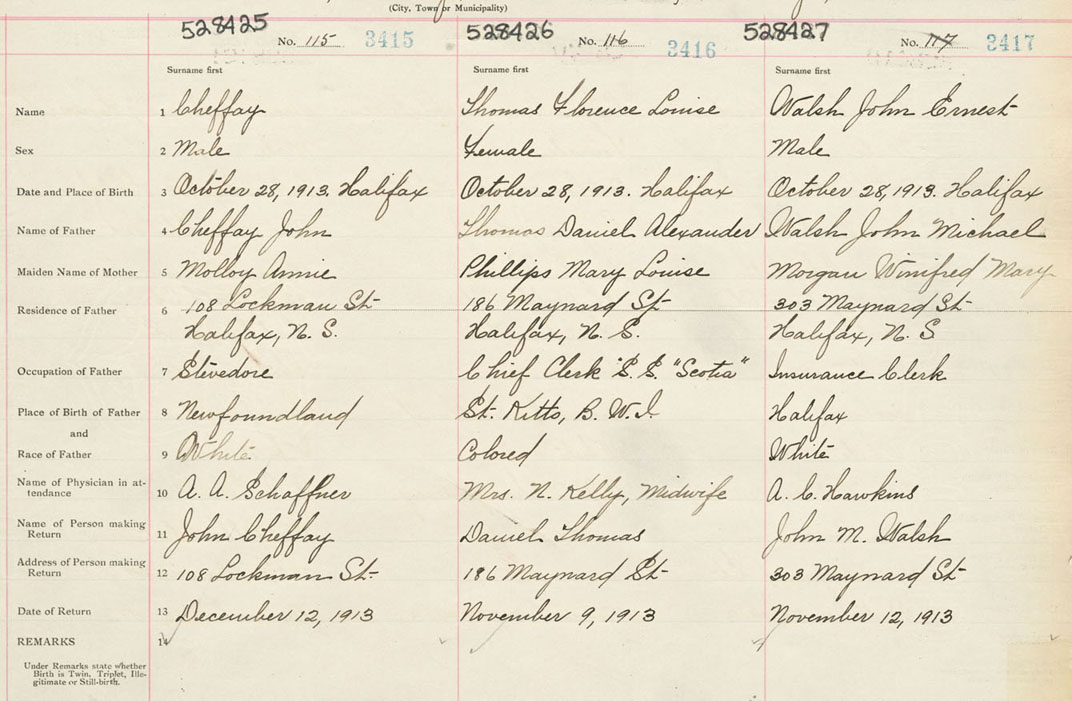 (City, Town or Municipality)
528425 No. 115 3415 528426 No. 116 3416 528427 No. 117 3417
Surname first Surname first Surname first
Name 1 Cheffay Thomas Florence Louise Walsh John Ernest
Sex 2 Male Female Male
Date and Place of Birth 3 October 28, 1913 Halifax October 28, 1913. Halifax October 28, 1913. Halifax
Name of Father 4 Cheffay John Thomas Daniel Alexander Walsh John Michael
Maiden Name of Mother 5 Molloy Annie Phillips Mary Louise Morgan Winifred Mary
Residence of Father 6 108 Lockman St 186 Maynard St 303 Maynard St
Halifax, N. S. Halifax, N. S. Halifax, N. S
Occupation of Father 7 Stevedore Chief Clerk S. S. "Scotia" Insurance Clerk
Place of Birth of Father 8 Newfoundland St. Kitts, B. W. I Halifax
and
Race of Father 9 White Colored White
Name of Physician in at-
tendance 10 A. A. Schaffner Mrs. N. Kelly, Midwife A. C. Hawkins
Name of Person making
Return 11 John Cheffay Daniel Thomas John M. Walsh
Address of Person making
Return 12 108 Lockman St. 186 Maynard St 303 Maynard St
Date of Return 13 December 12, 1913 November 9, 1913 November 12, 1913
REMARKS 14
Under Remarks state whether
Birth is Twin, Triplet, Ille-
gitimate or Still-birth.